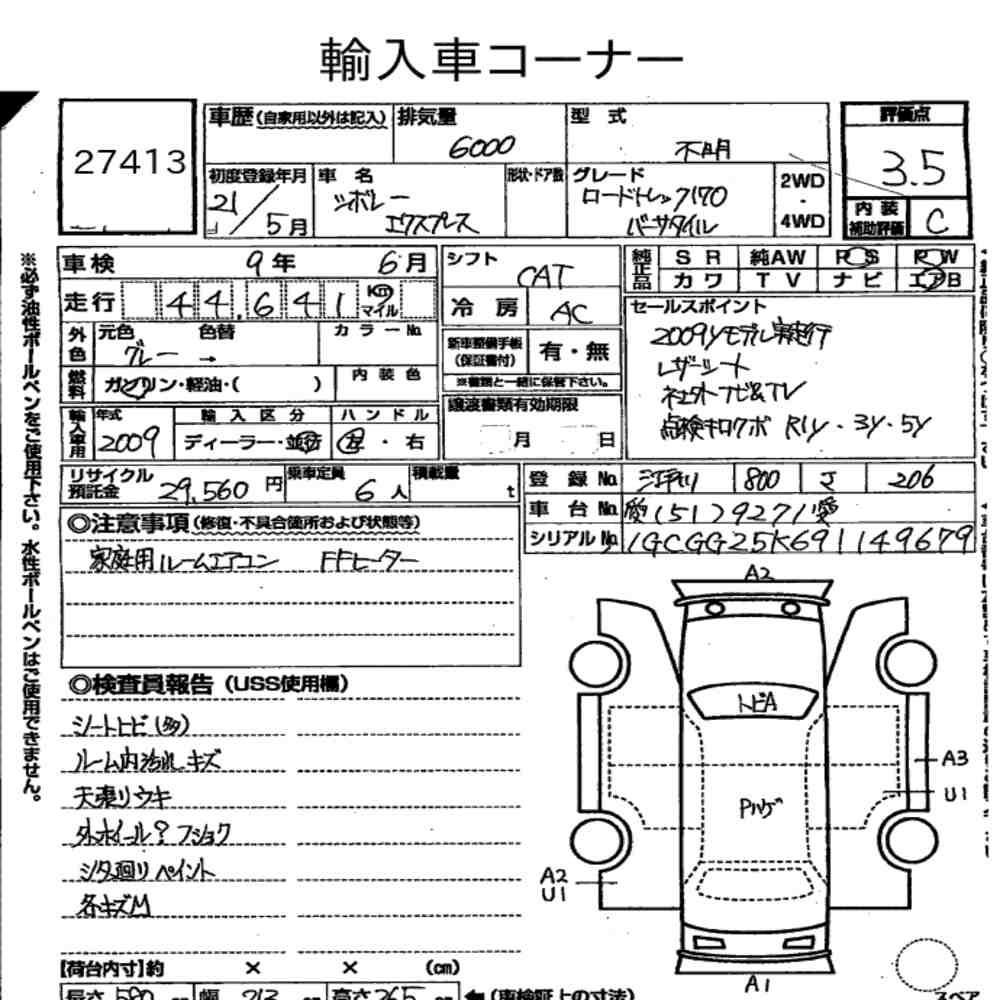 輸入車コーナー
27413
車歴(自家用以外は記入) 排気量 6000 型式 不明
評価点 3.5
初度登録年月 21/5月 車名 シボレー エクスプレス
形状・ドア数 グレード ロードトレック170 バーサタイル
2WD・4WD
内装補助評価 C
車検 9年 6月
走行 44,641 Km マイル
シフト CAT
冷房 AC
純正品 SR 純AW PS PW
カワ TV ナビ エアB
外色 元色 グレー → 色替 カラーNo.
燃料 ガソリン・軽油・( ) 内装色
新車整備手帳(保証書付) 有・無
※書類と一緒に保管下さい。
セールスポイント
2009yモデル実走行
レザーシート
社外ナビ&TV
点検キロクボ R1y・3y・5y
輸入車用 年式 2009 輸入区分 ディーラー・並行 ハンドル 左・右
譲渡書類有効期限 月 日
リサイクル預託金 29,560円 乗車定員 6人 積載量 t
登録No. 800 さ 206
車台No. 愛[51]79271愛
シリアルNo. 1GCGG25K691149679
◎注意事項(修復・不具合箇所および状態等)
家庭用ルームエアコン FFヒーター
◎検査員報告(USS使用欄)
シートヒビ(多)
ルーム内汚れ キズ
天張りウキ
外ホイール? フショク
シタ廻りペイント
各キズM
【荷台内寸】約 × × (cm)
長さ 580 幅 213 高さ 265 (車検証上の寸法)
A2
トビA
Pハゲ
A3
U1
A2
U1
A1
スペア
※必ず油性ボールペンをご使用下さい。水性ボールペンはご使用できません。